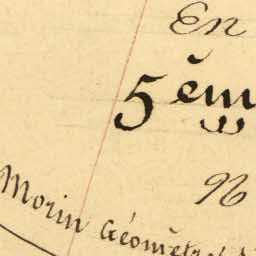 En
5ème
N
Morin Géomètre